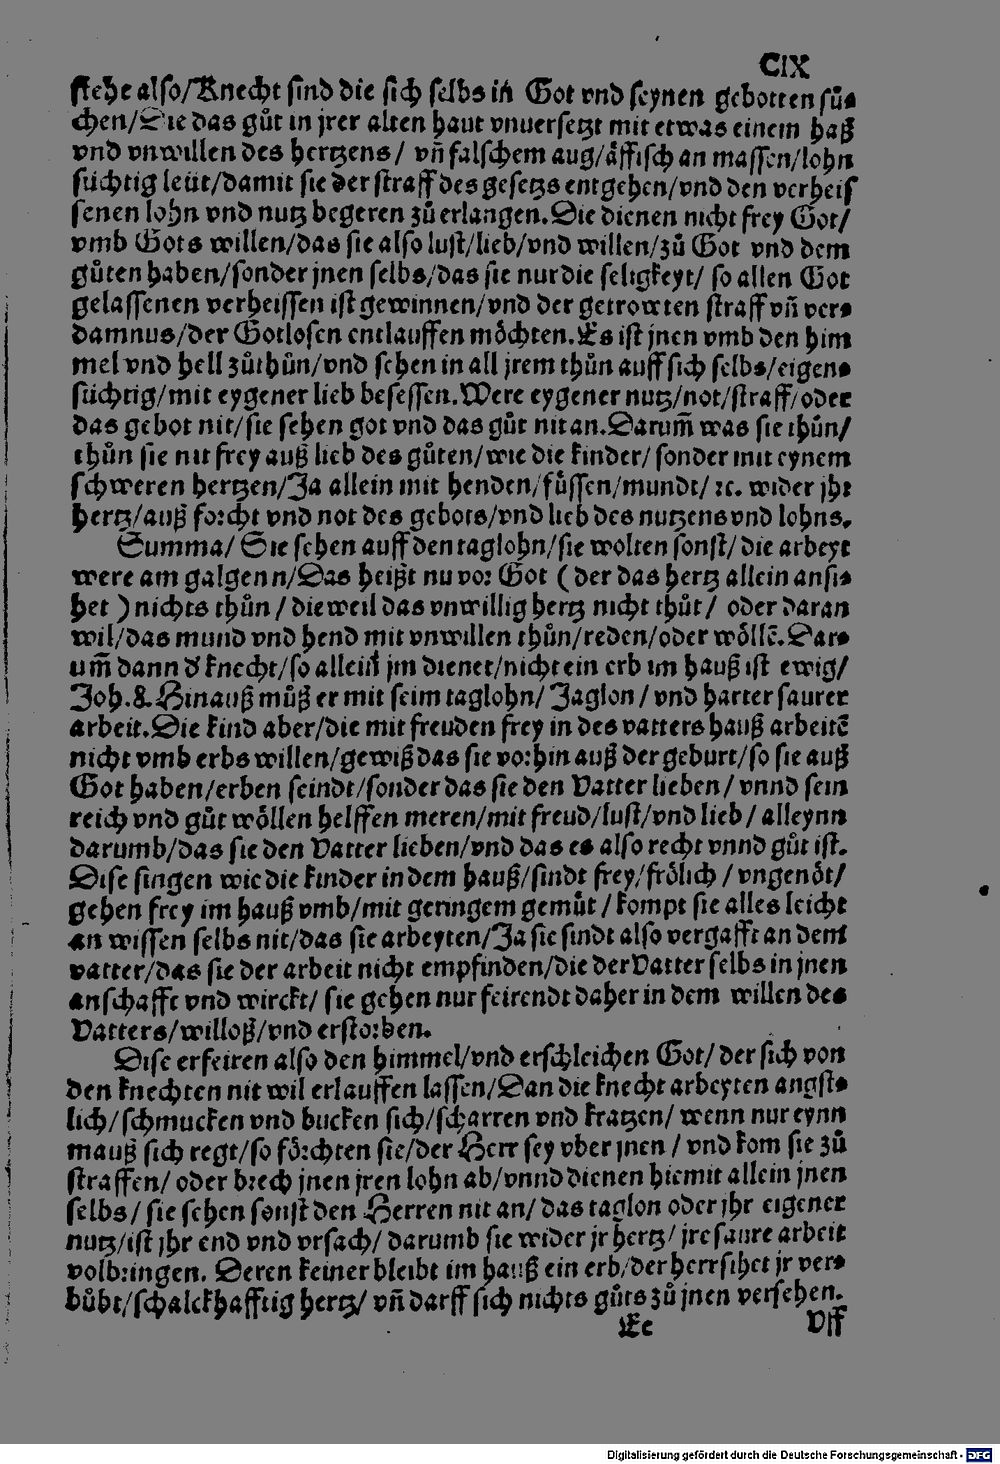 CIX
stehe also/Knecht sind die sich selbs in Got vnd seynen gebotten sů⸗
chen/Die das gůt in jrer alten haut vnuersetzt mit etwas einem haß
vnd vnwillen des hertzens/ vñ falschem aug/äffisch an massen/lohn
süchtig leüt/damit sie der straff des gesetzs entgehen/vnd den verheis
senen lohn vnd nutz begeren zů erlangen.Die dienen nicht frey Got/
vmb Gots willen/das sie also lust/lieb/vnd willen/zů Got vnd dem
gůten haben/sonder jnen selbs/das sie nur die seligkeyt/ so allen Got
gelassenen verheissen ist gewinnen/vnd der getrowten straff vñ ver⸗
damnus/der Gotlosen entlauffen möchten.Es ist jnen vmb den him
mel vnd hell zůthůn/vnd sehen in all jrem thůn auff sich selbs/eigen⸗
süchtig/mit eygener lieb besessen.Were eygener nutz/not/straff/oder
das gebot nit/sie sehen got vnd das gůt nit an.Darum̃ was sie thůn/
thůn sie nit frey auß lieb des gůten/wie die kinder/ sonder mit eynem
schweren hertzen/Ja allein mit henden/füssen/mundt/ ꝛc. wider jhr
hertz/auß forcht vnd not des gebots/vnd lieb des nutzens vnd lohns.
Summa/ Sie sehen auff den taglohn/sie wolten sonst/ die arbeyt
were am galgenn/Das heißt nu vor Got ( der das hertz allein ansi⸗
het ) nichts thůn / die weil das vnwillig hertz nicht thůt / oder daran
wil/das mund vnd hend mit vnwillen thůn/reden/oder wöllē.Dar⸗
um̃ dann d̕ knecht/so allein jm dienet/nicht ein erb im hauß ist ewig/
Joh.8.Hinauß můß er mit seim taglohn/ Jaglon / vnd harter saurer
arbeit.Die kind aber/die mit freuden frey in des vatters hauß arbeitē
nicht vmb erbs willen/gewiß das sie vorhin auß der geburt/so sie auß
Got haben/erben seindt/sonder das sie den Vatter lieben/ vnnd sein
reich vnd gůt wöllen helffen meren/mit freud/lust/vnd lieb / alleynn
darumb/das sie den Vatter lieben/vnd das es also recht vnnd gůt ist.
Dise singen wie die kinder in dem hauß/sindt frey/frölich / vngenöt/
gehen frey im hauß vmb/mit geringem gemüt / kompt sie alles leicht
an wissen selbs nit/das sie arbeyten/Ja sie sindt also vergafft an dem
vatter/das sie der arbeit nicht empfinden/die der Vatter selbs in jnen
anschafft vnd wirckt/ sie gehen nur feirendt daher in dem willen des
Vatters/willoß/vnd erstorben.
Dise erfeiren also den himmel/vnd erschleichen Got/ der sich von
den knechten nit wil erlauffen lassen/Dan die knecht arbeyten angst⸗
lich/schmucken vnd bucken sich/scharren vnd kratzen/ wenn nur eynn
mauß sich regt/so förchten sie/der Herr sey vber jnen / vnd kom sie zů
straffen/ oder brech jnen jren lohn ab/vnnd dienen hiemit allein jnen
selbs/ sie sehen sonst den Herren nit an/ das taglon oder jhr eigener
nutz/ist jhr end vnd vrsach/ darumb sie wider jr hertz/ jre saure arbeit
volbringen. Deren keiner bleibt im hauß ein erb/der herr sihet jr ver⸗
bůbt/schalckhafftig hertz/ vñ darff sich nichts gůts zů jnen versehen.
Ee Vff
Digitalisierung gefördert durch die Deutsche Forschungsgemeinschaft - DFG